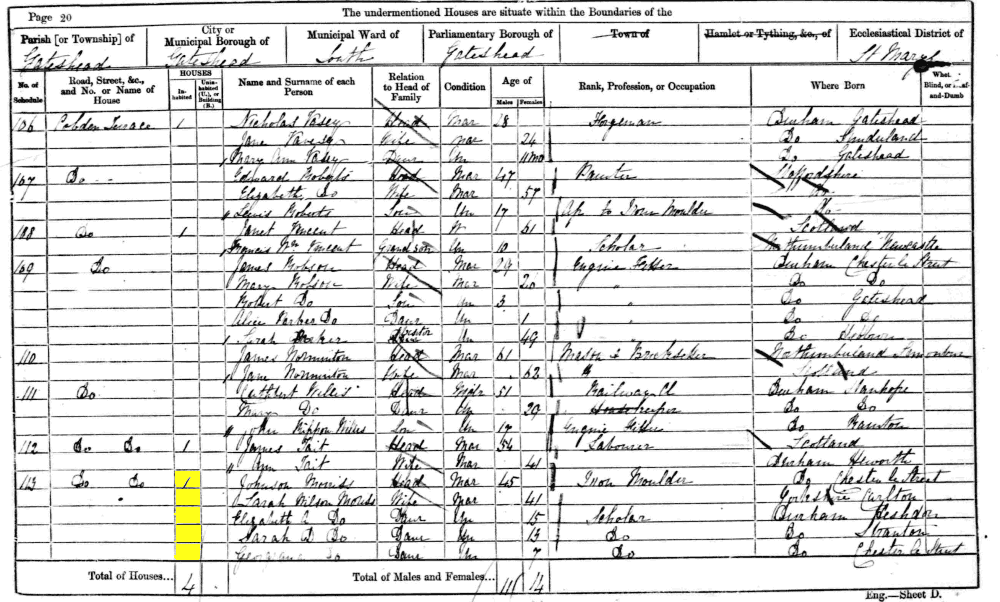 Page 20
The undermentioned Houses are situate within the Boundaries of the
Parish [or Township] of
City or Municipal Borough of
Municipal Ward of
Parliamentary Borough of
Town of
Hamlet or Tything, &c., of
Ecclesiastical District of
Gateshead Gateshead South Gateshead St Marys
No. of Schedule
Road, Street, &c., and No. or Name of House
HOUSES
In-habited
Unin-habited (U.), or Building (B.)
Name and Surname of each Person
Relation to Head of Family
Condition
Age of
Males Females
Rank, Profession, or Occupation
Where Born
Whet. Blind, or Deaf-and-Dumb
106 Cobden Terrace 1 Nicholas Vasey Head Mar 18 Forgeman Durham Gateshead
Jane Wife Mar 24 Do Sunderland
Mary Ann Vasey Daur Un 11 mo Do Gateshead
107 Do Edward Roberts Head Mar 47 Painter Staffordshire
Elizabeth Do Wife Mar 57 Do
Lewis Roberts Son Un 17 Ap to Iron Moulder Do
108 Do 1 Janet Vincent Head W 61 Scotland
Francis Wm Vincent Grandson Un 10 Scholar Northumberland Newcastle
109 Do James Robson Head Mar 29 Engine Fitter Durham Chester le Street
Mary Robson Wife Mar 20 Do Do
Robert Do Son Un 3 Do Gateshead
Alice Parker Do Daur Un 1 Do Do
Sarah Visitor Un 49 Do
110 James Norminton Head Mar 61 Mason & Northumberland
Jane Norminton Wife Mar 62 Scotland
111 Do Cuthbert Willis Head 51 Railway Cl Durham Stanhope
Mary Do Daur Un 29 Do Do
John Rippon Willis Son Un 17 Engine Fitter Do
112 Do Do 1 James Tait Head Mar 54 Labourer Scotland
Ann Tait Wife Mar 41 Durham Heworth
113 Do Do 1 Johnson Morriss Head Mar 45 Iron Moulder Do Chester le Street
Sarah Wilson Morriss Wife Mar 41 Yorkshire Carlton
Elizabeth A Do Daur Un 15 Scholar Durham
Sarah D Do Daur Un 13 Do Do Stranton
Georgiana Do Daur Un 7 Do Do Chester le Street
Total of Houses... 4 Total of Males and Females... 11 14
Eng.—Sheet D.